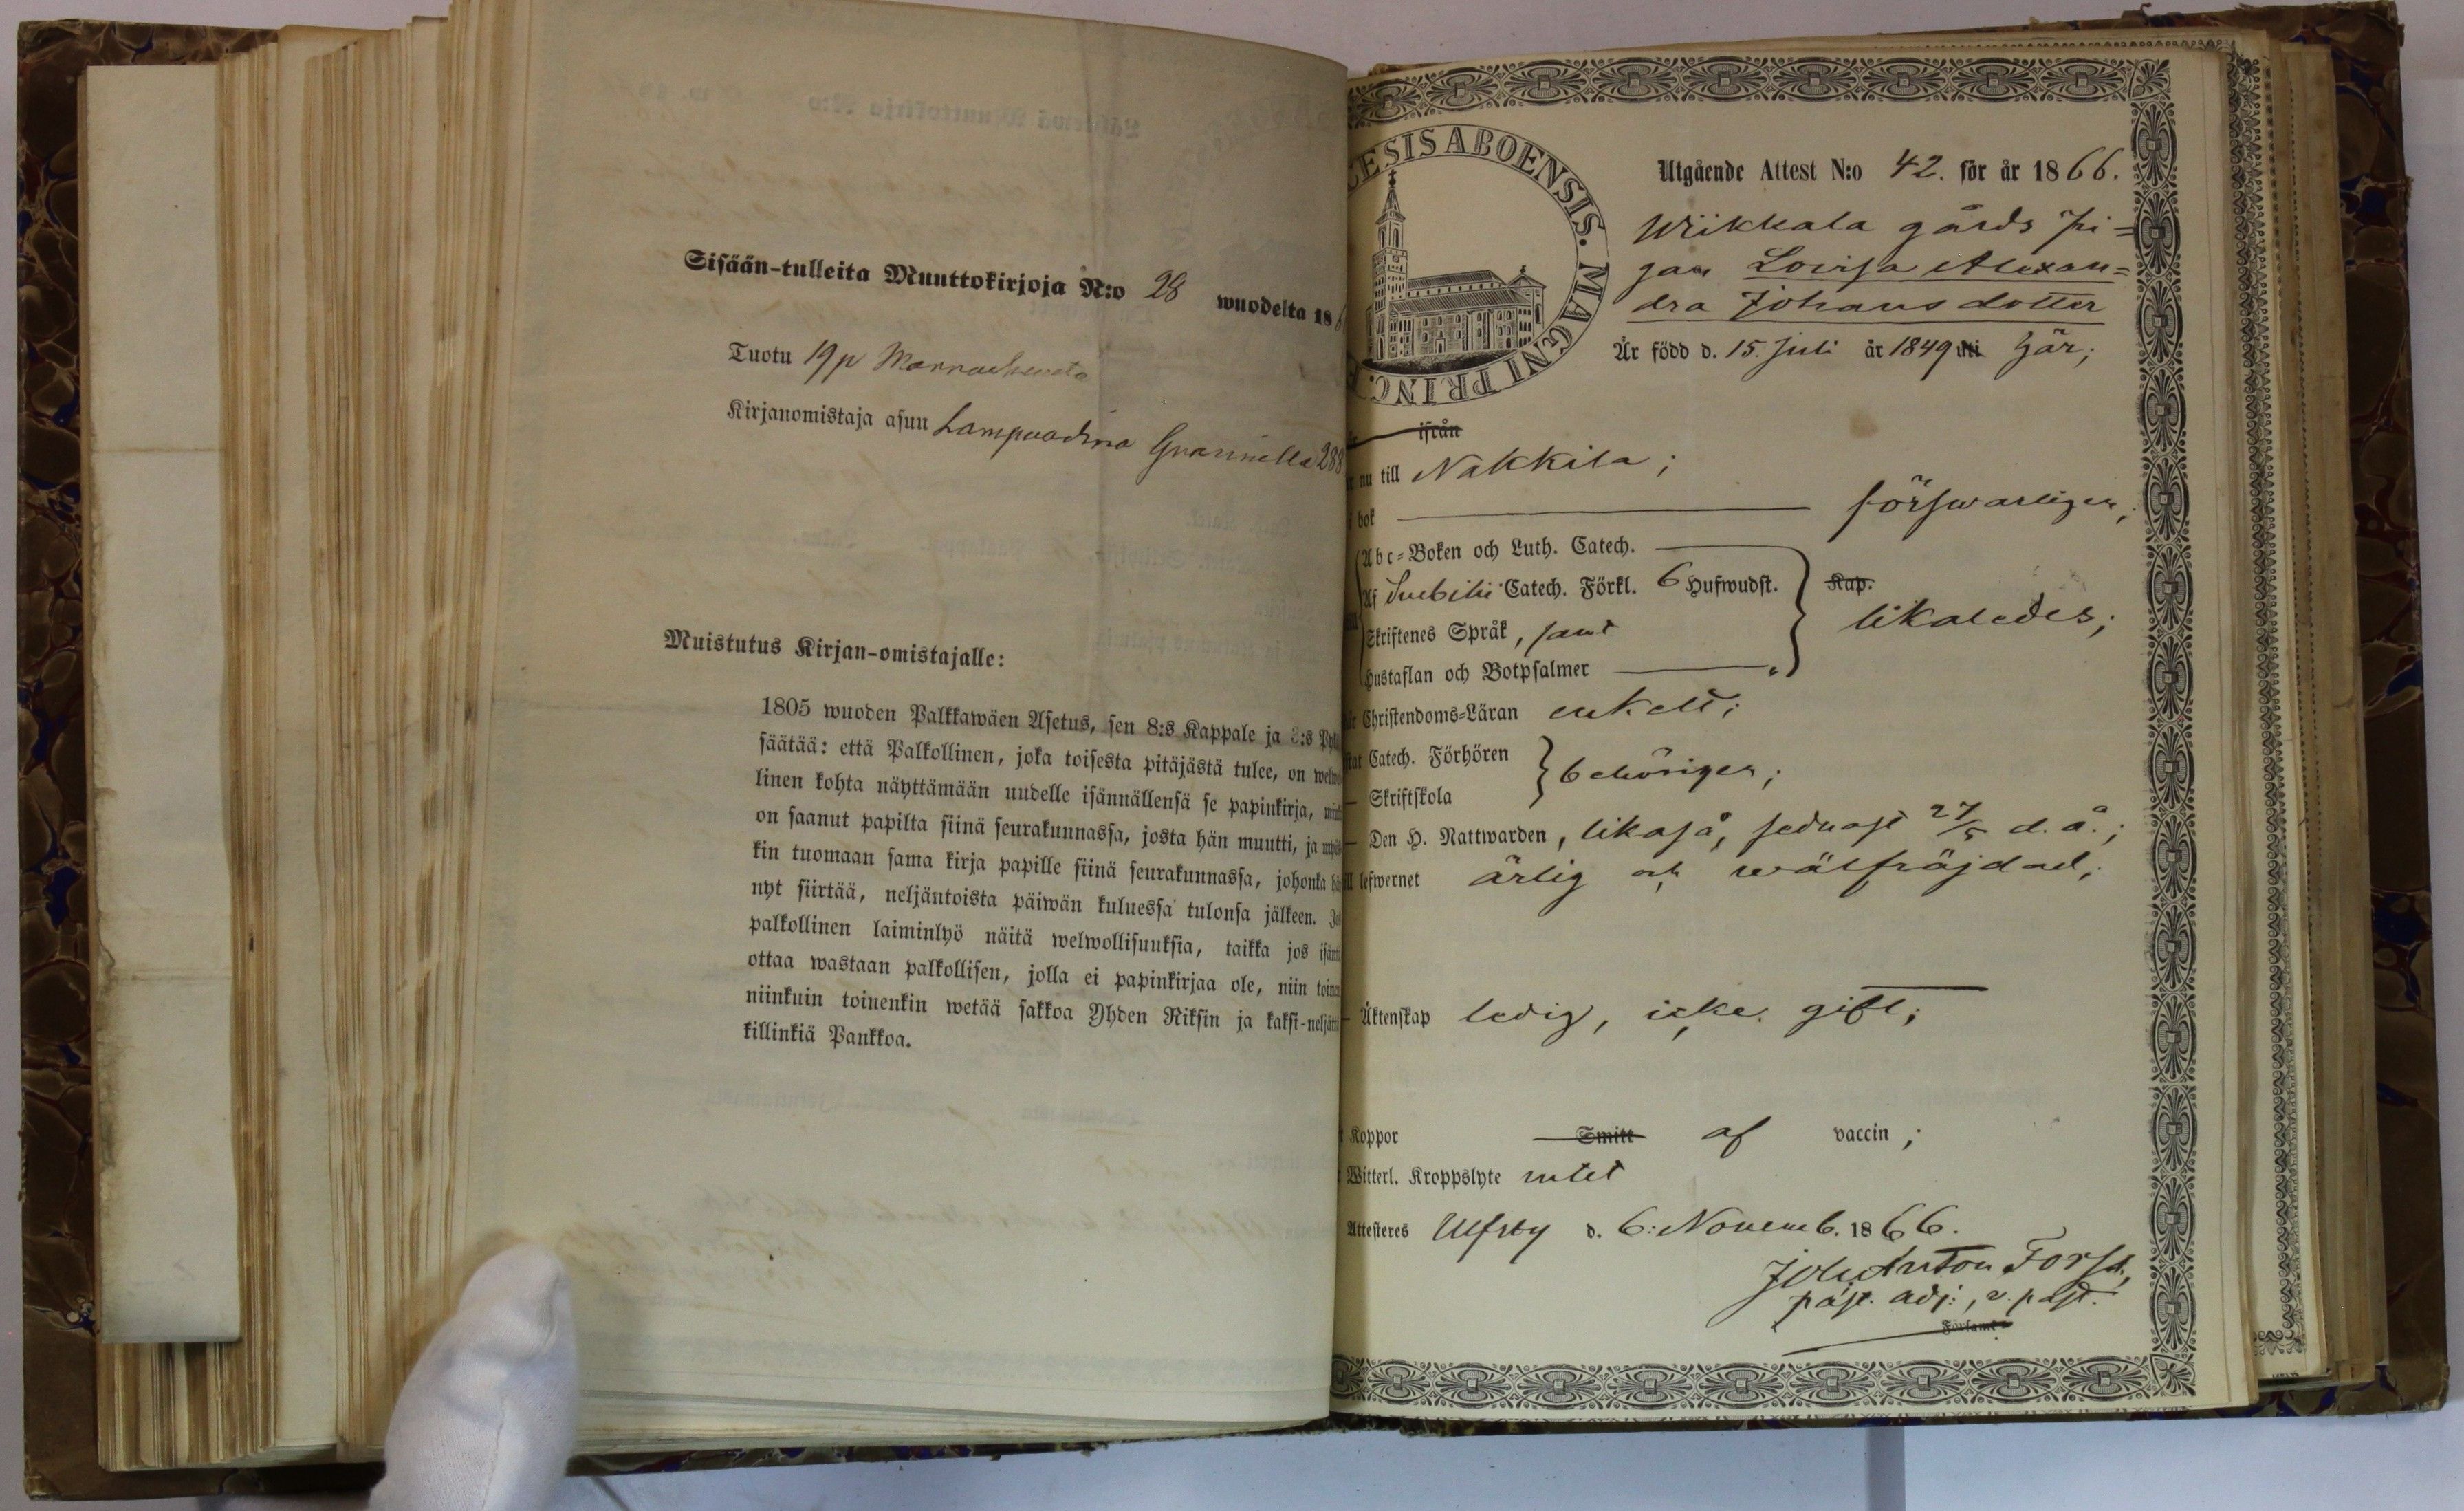 Sisään-tulleita Muuttokirjoja N:o 28 wuodelta 18
Tuotu 19 p Marraskuuta
Kirjanomistaja asuu 288
Muistutus Kirjan-omistajalle:
1805 wuoden Palkkawäen Asetus, sen 8:s Kappale ja
säätää: että Palkollinen, joka toisesta pitäjästä tulee, on
linen kohta näyttämään uudelle isännällensä se papinkirja,
on saanut papilta siinä seurakunnassa, josta hän muutti, ja
kin tuomaan sama kirja papille siinä seurakunnassa, johonka
nyt siirtää, neljäntoista päiwän kuluessa tulonsa jälkeen.
palkollinen laiminlyö näitä welwollisuuksia, taikka jos
ottaa wastaan palkollisen, jolla ei papinkirjaa ole, niin
niinkuin toinenkin wetää sakkoa Yhden Riksin ja
killinkiä Pankkoa.
ESIS ABOENSIS. MAGNI PRINC.
Utgående Attest N:o 42. för år 1866.
Wiikkala gårds pi=
gan Lovisa Alexan=
dra Johansdotter
Är född d. 15. Juli år 1849 uti här;
ifrån
nu till Nakkila;
bok försvarligen;
Abc-Boken och Luth. Catech.
Af Svebilii Catech. Förkl. 6 Hufwudst. Kap.
Skriftenes Språk, samt likaledes;
Hustaflan och Botpsalmer
Christendoms-Läran enkelt;
Catech. Förhören
behörigen;
Skriftskola
Den H. Nattwarden, likaså, sednast 27/5 d. å.;
lefwernet ärlig och wälfräjdad;
Äktenskap ledig, icke gift;
Koppor Smitt af vaccin;
Witterl. Kroppslyte intet
Attesteres Ulfsby d. 6: Novemb. 1866.
Joh. Anton Forss,
past. adj:, v. past.
Församl.